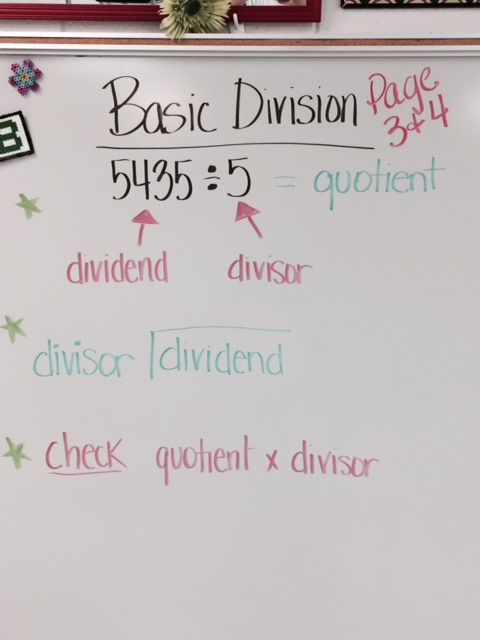 Basic Division
Page
3 & 4
5435 ÷ 5 = quotient
dividend divisor
divisor dividend
check quotient x divisor
B